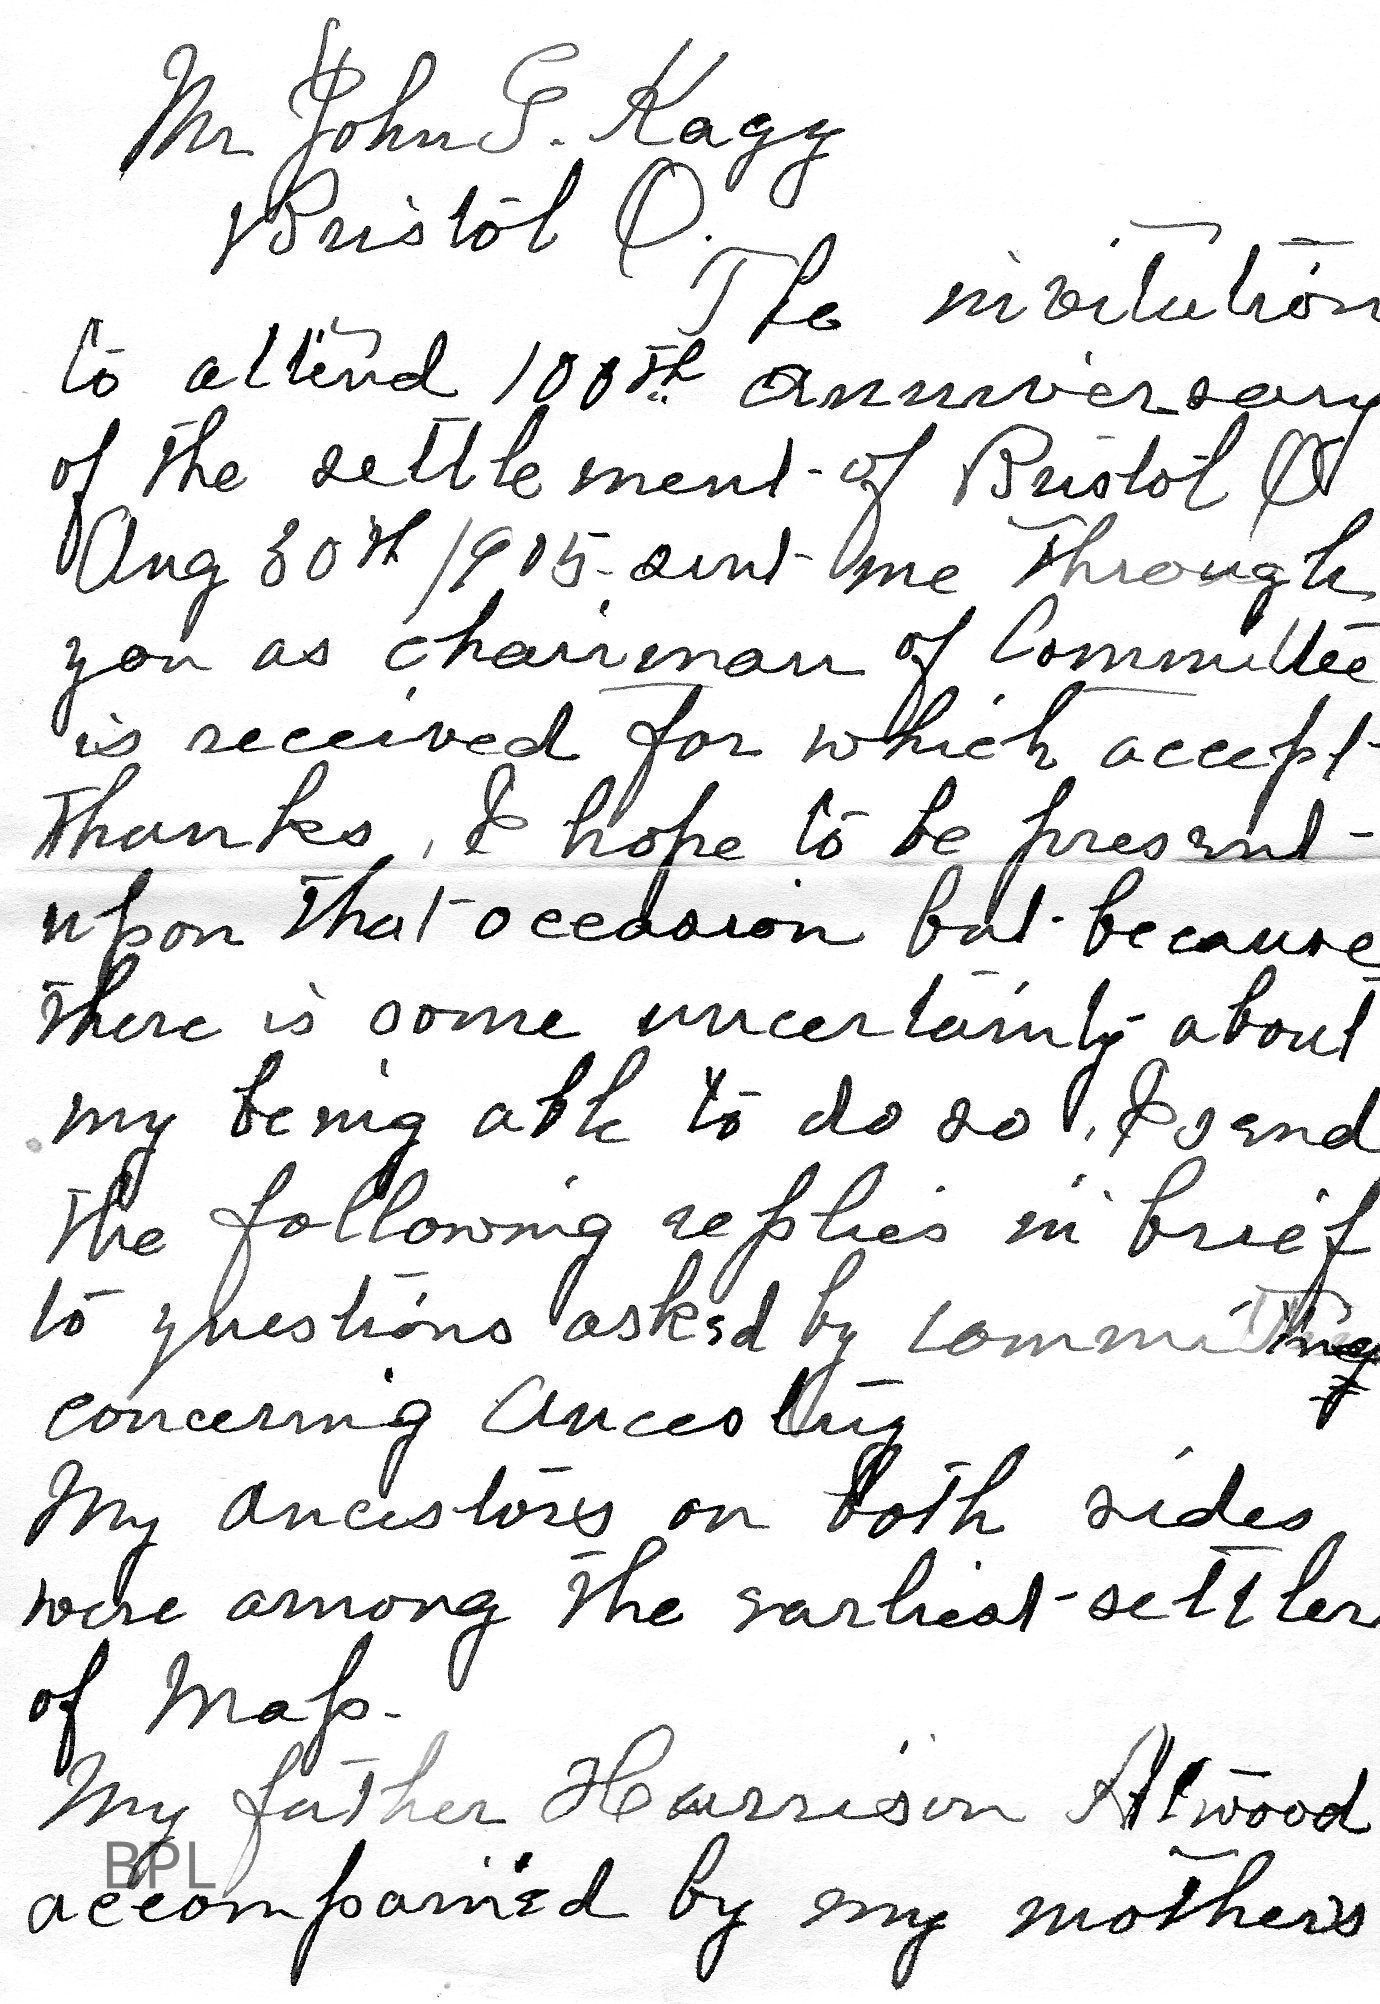 Mr John G. Kagy
Bristol O.
The invitation
to attend 100th anniversary
of the settlement of Bristol O
Aug 30th 1905 sent me through
you as chairman of Committee
is received for which accept
thanks, I hope to be present
upon that occasion but because
there is some uncertainty about
my being able to do so, I send
the following replies in brief
to questions asked by committee
concerning Ancestry
My Ancestors on both sides
were among the earliest settler
of Mass.
My father Harrison Atwood
BPL
accompanied by my mothers